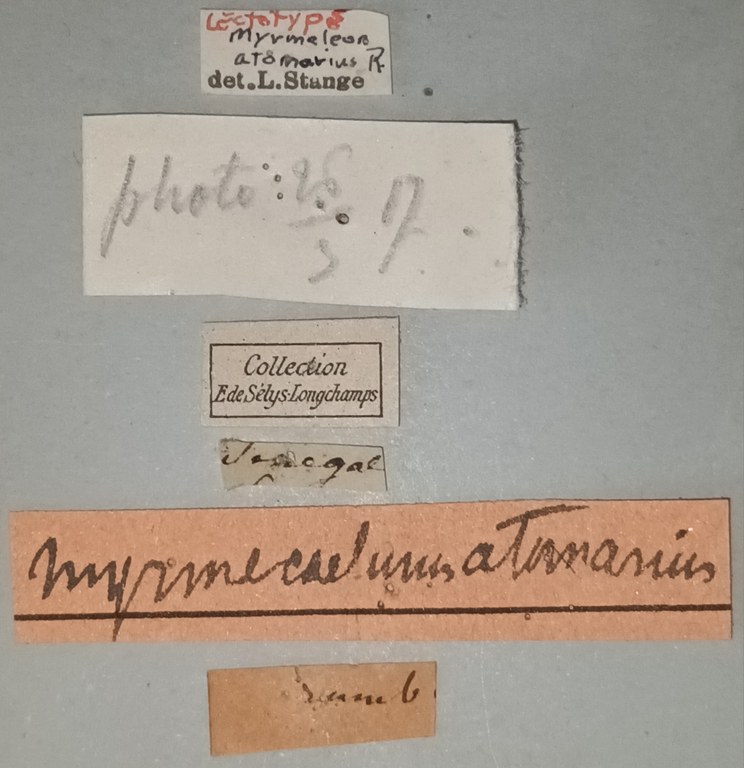 Lectotype
Myrmeleon
atomarius R.
det. L. Stange
photo : 28 17.
3
Collection
E de Sélys-Longchamps
Senegal
Myrmecaelurus atomarius
ramb.